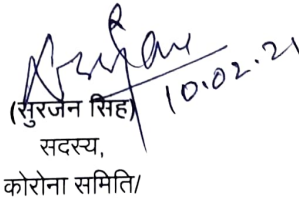 10.02.21
(सुरजन सिंह)
सदस्य,
कोरोना समिति/